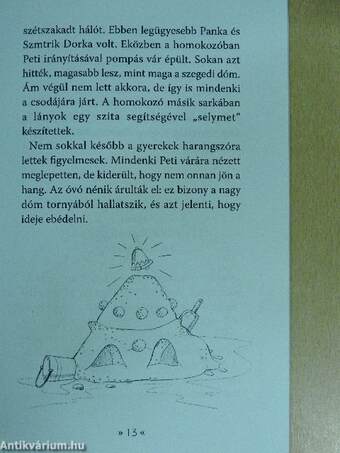 szétszakadt hálót. Ebben legügyesebb Panka és
Szmtrik Dorka volt. Eközben a homokozóban
Peti irányításával pompás vár épült. Sokan azt
hitték, magasabb lesz, mint maga a szegedi dóm.
Ám végül nem lett akkora, de így is mindenki
a csodájára járt. A homokozó másik sarkában
a lányok egy szita segítségével „selymet"
készítettek.
Nem sokkal később a gyerekek harangszóra
lettek figyelmesek. Mindenki Peti várára nézett
meglepetten, de kiderült, hogy nem onnan jön a
hang. Az óvó nénik árulták el: ez bizony a nagy
dóm tornyából hallatszik, és azt jelenti, hogy
ideje ebédelni.
» 13 «
Antikvárium.hu